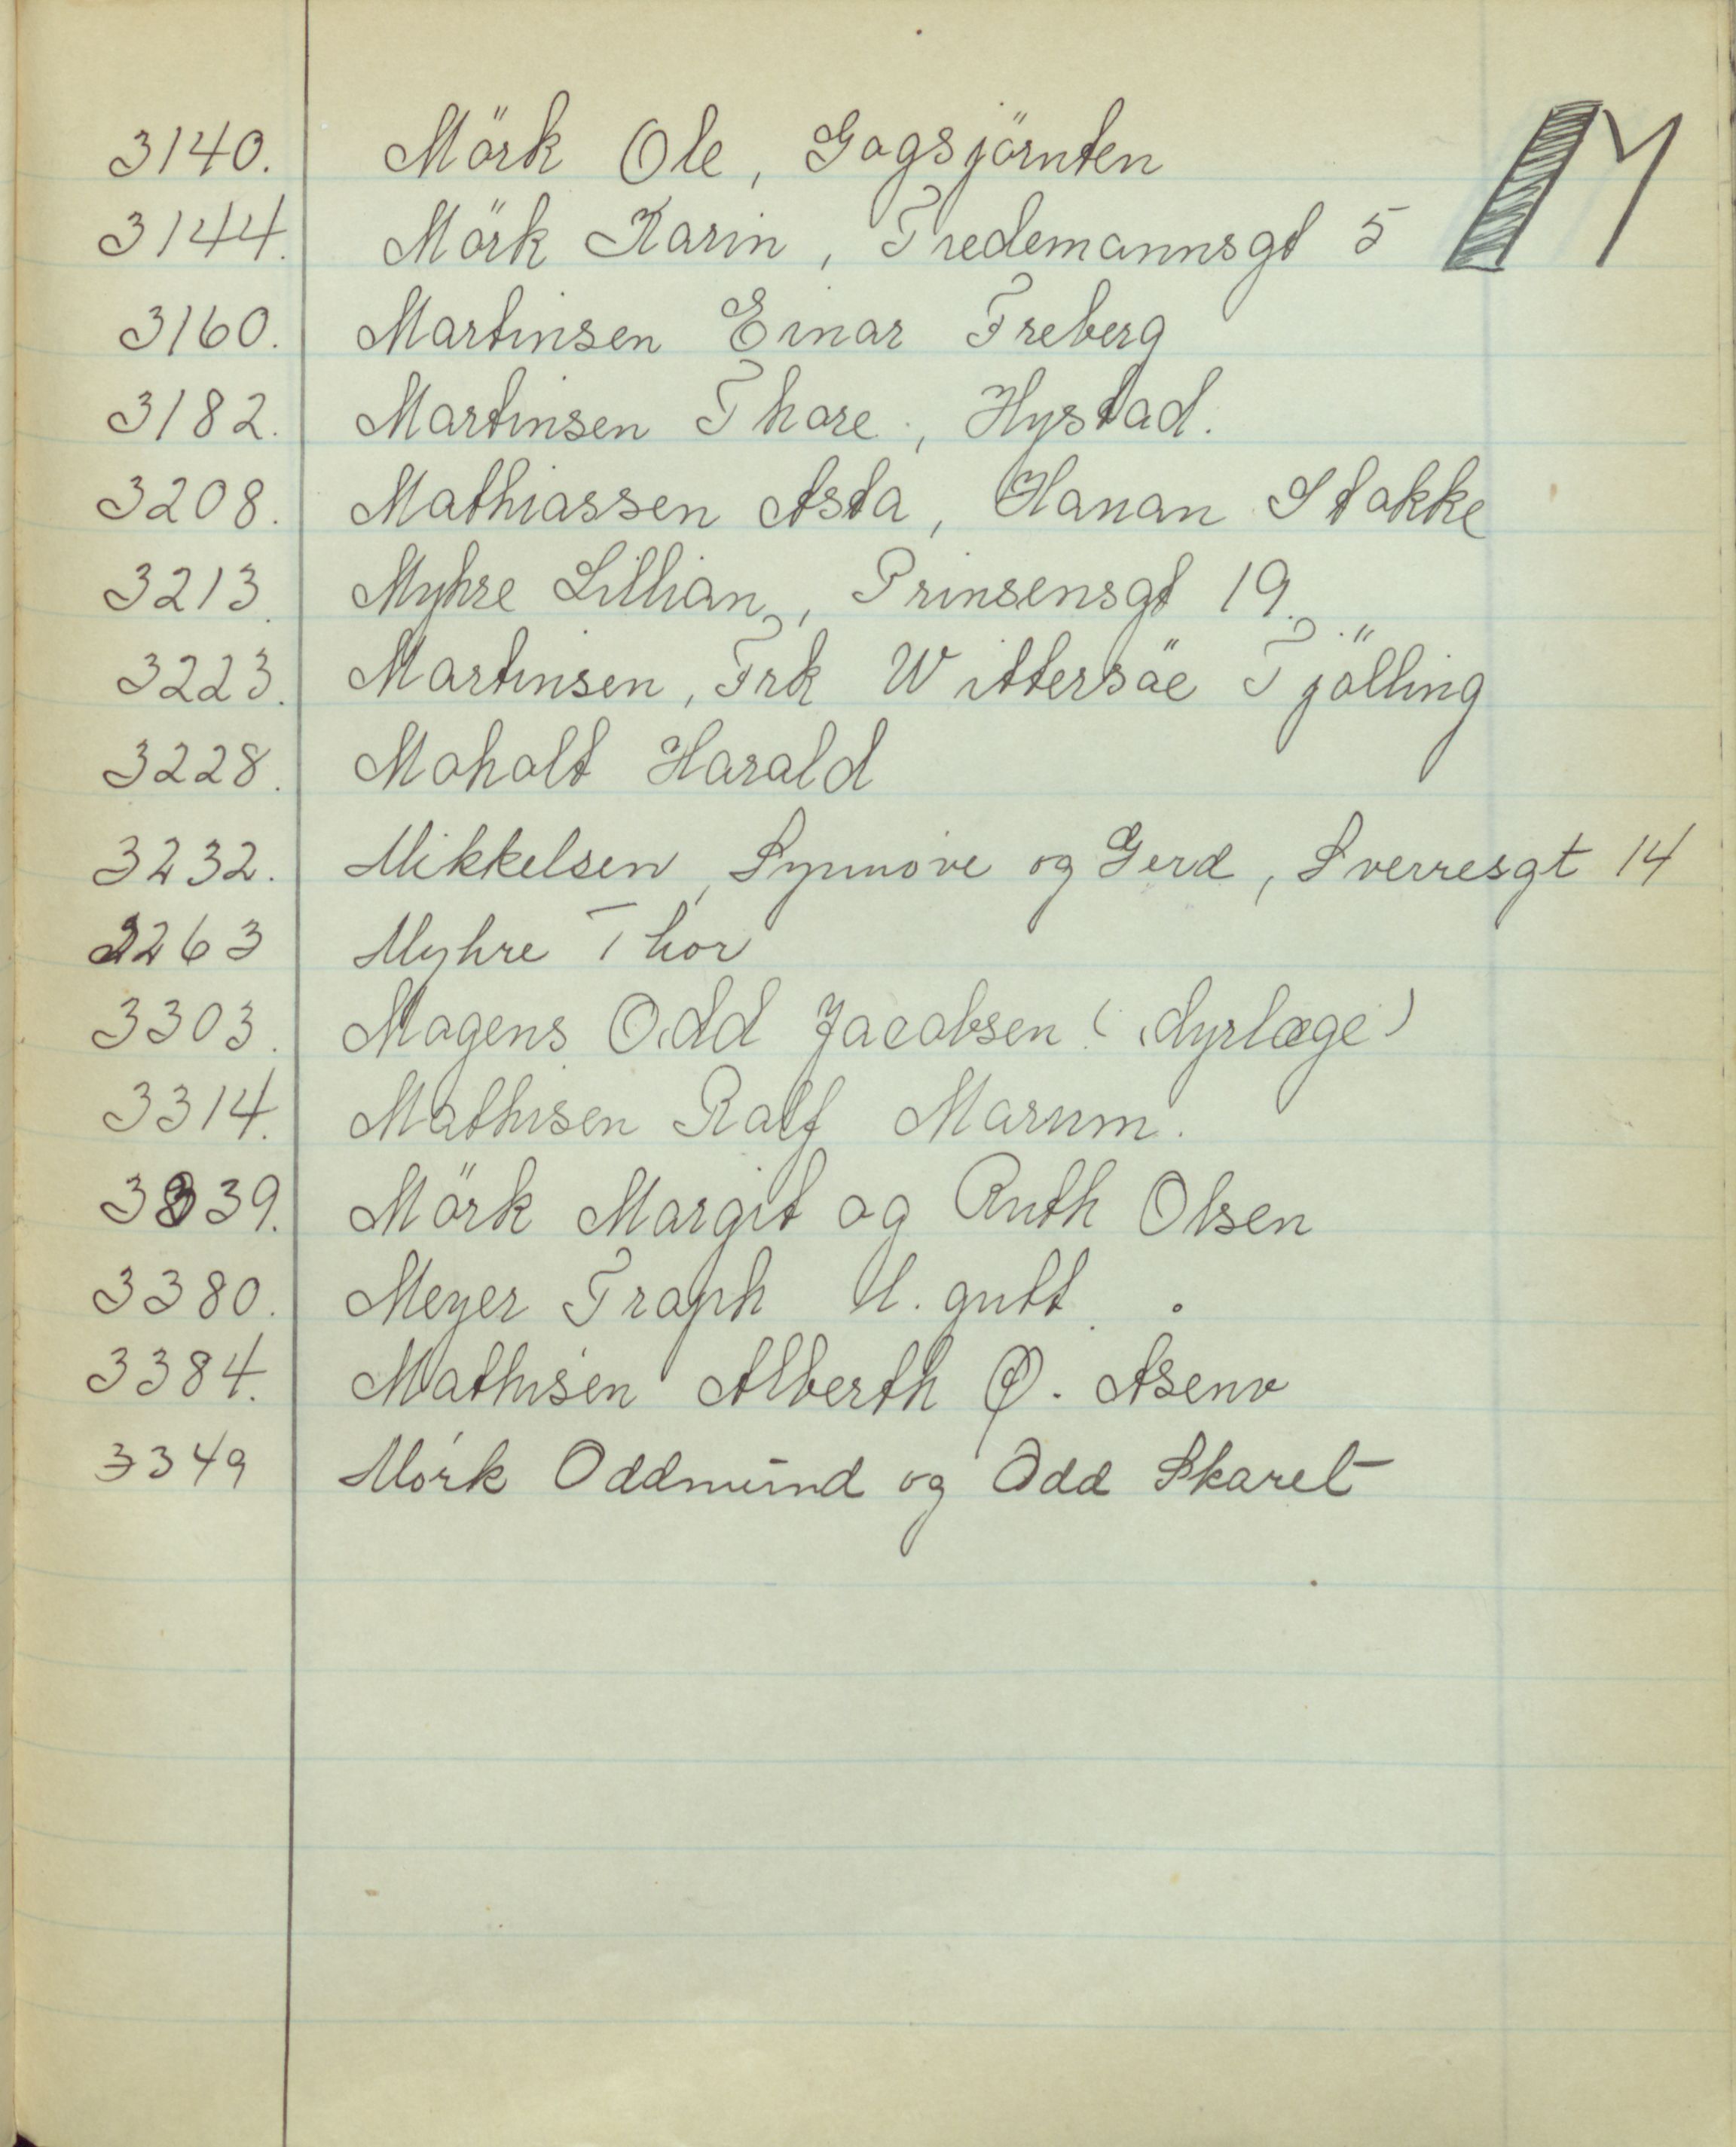 M
3140. Mörk Ole, Gogsjörnten
3144. Mörk Karin, Tredemannsgt 5
3160. Martinsen Einar Freberg
3182. Martinsen Thore, Hystad.
3208. Mathiassen Asta, Hanan Stokke
3213. Myhre Lillian, Prinsensgt 19.
3223. Martinsen, Frk Wittersöe Tjölling
3228. Moholt Harald
3232. Mikkelsen, Synnöve og Gerd, Sverresgt 14
3263 Myhre Thor
3303. Mogens Odd Jacobsen (dyrlæge)
3314. Mathisen Ralf Marum.
3339. Mörk Margit og Ruth Olsen
3380. Meyer Traph U. gutt.
3384. Mathisen Alberth Ø. Asenv
3349 Mörk Oddmund og Odd Skaret